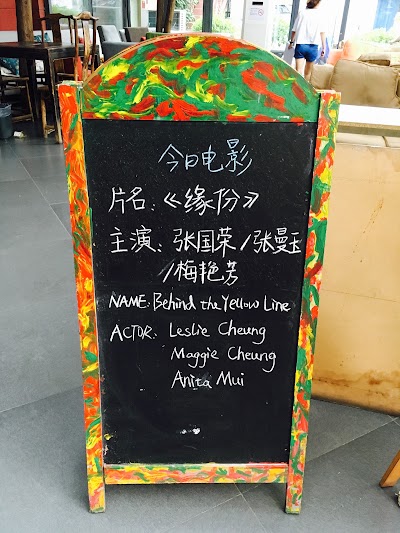 今日电影
片名：《缘份》
主演：张国荣/张曼玉
/梅艳芳
NAME: Behind the Yellow Line
ACTOR: Leslie Cheung
Maggie Cheung
Anita Mui